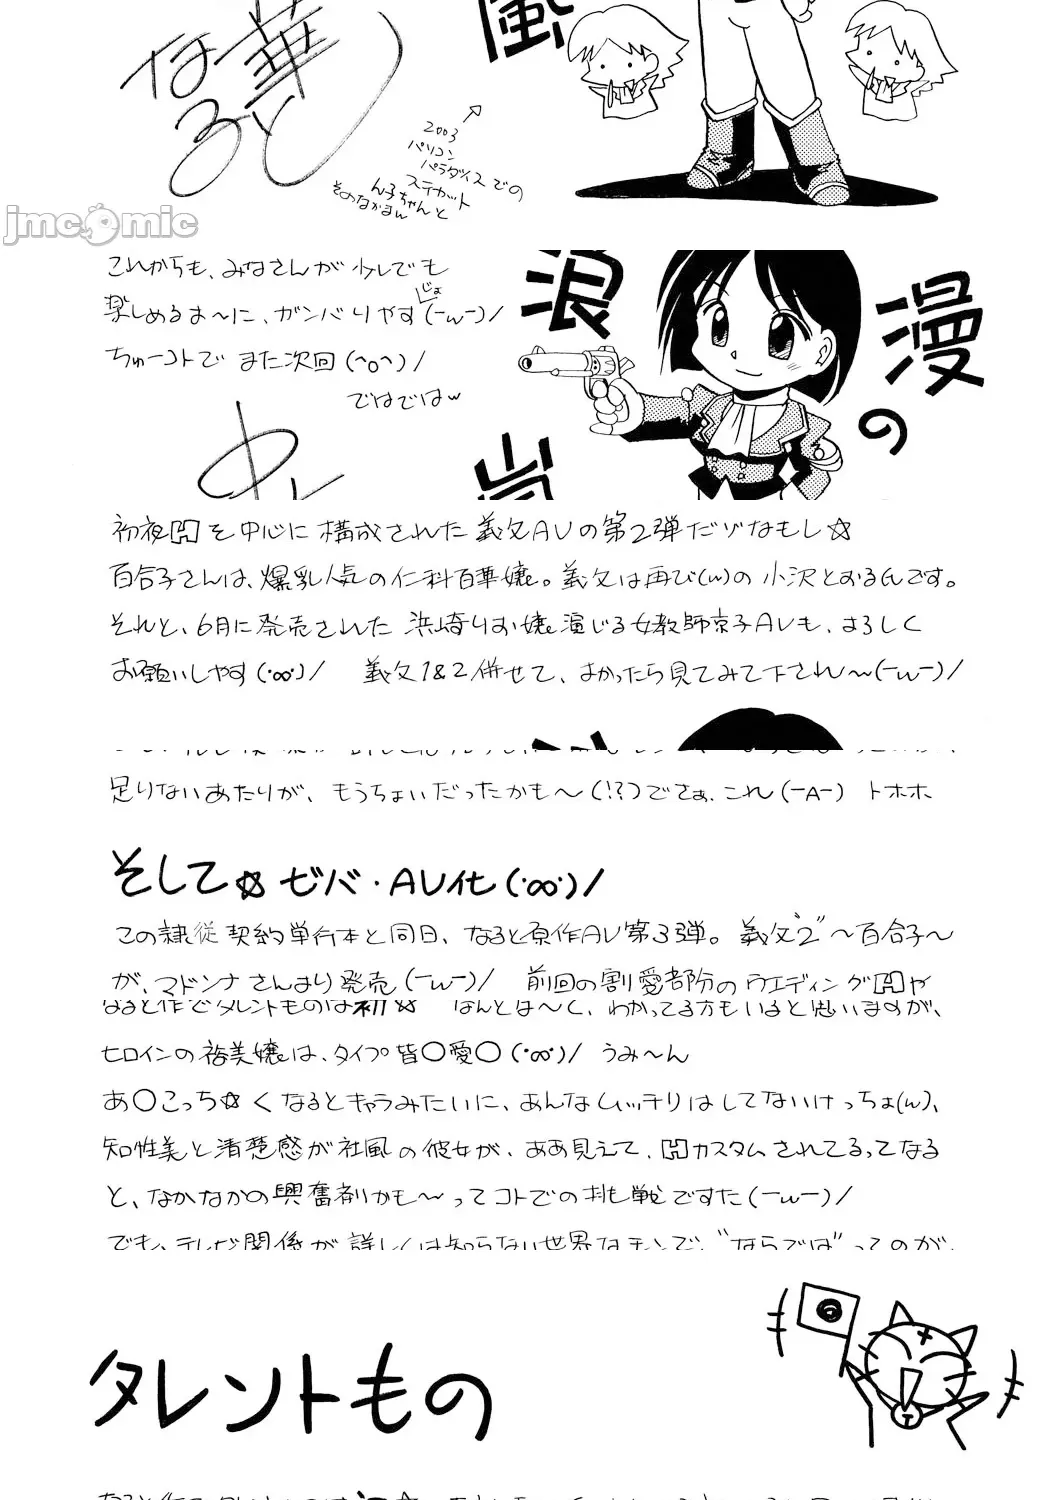 なると
華
風
2003
パソコン
パラダイスでの
ステカット
ん子ちゃんと
そのなかまw
jmcomic
これからも、みなさんが少しでも
楽しめるよ〜に、ガンバりやす(ーwー)/
じょ
ちゅーコトで また次回(^o^)/
ではでは〜
浪
漫
の
嵐
初夜Hを中心に構成された義父AVの第2弾だゾなもし☆
百合子さんは、爆乳人気の仁科百華嬢。義父は再び(w)の小沢とおるんです。
それと、6月に発売された 浜崎りお嬢演じる女教師京子AVも、よろしく
お願いしやす(・∞・)/ 義父1&2併せて、よかったら見てみて下され〜(ーwー)/
足りないあたりが、もうちょいだったかも〜(!?)でさぁ、これ(ーAー) トホホ
そして☆ ゼバ・AV化(・∞・)/
この隷従契約単行本と同日、なると原作AV第3弾。義父"2"〜百合子〜
が、マドンナさんより発売(ーwー)/ 前回の割愛部分のウエディングHや
なると作でタレントものは初☆ なんとは〜く、わかってる方もいると思いますが、
ヒロインの裕美嬢は、タイプ皆〇愛〇(・∞・)/ うみ〜ん
あ〇こっち☆く なるとキャラみたいに、あんなムッチリはしてないけっちょ(w)、
知性美と清楚感が社風の彼女が、ああ見えて、Hカスタムされてるってなる
と、なかなかの興奮剤かも〜ってコトでの挑戦ですた(ーwー)/
でも、テレビ関係が詳しくは知らない世界なモンで、"ならでは"ってのが、
タレントもの